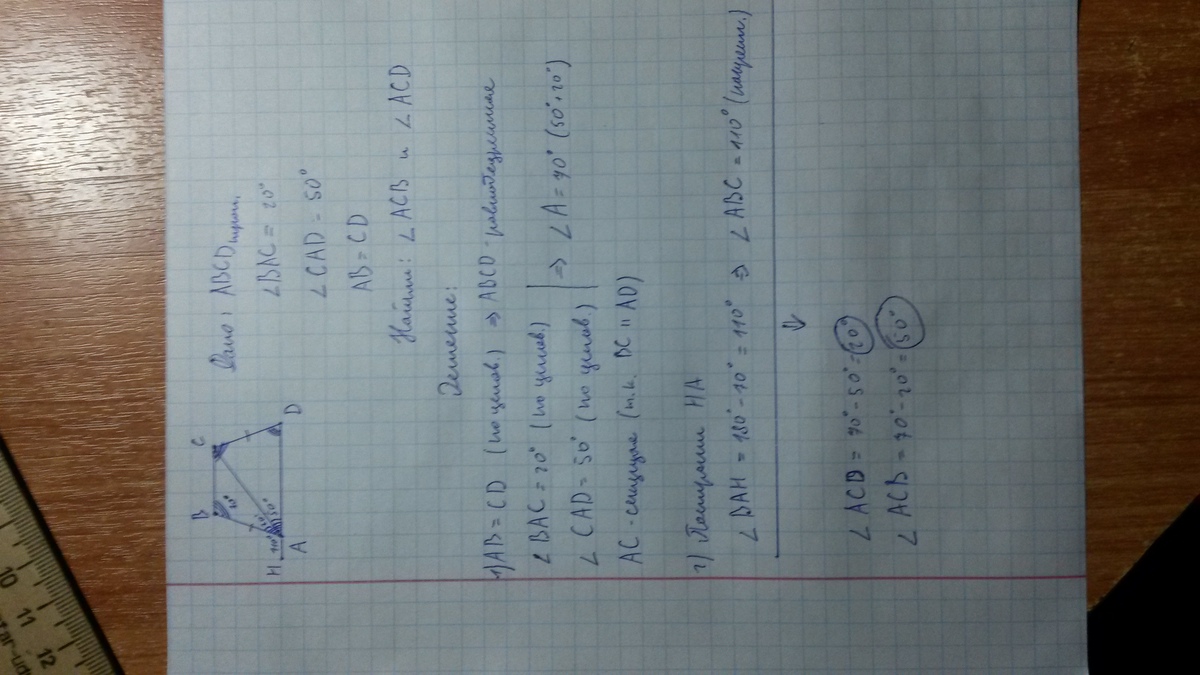 Дано: ABCD трап.
∠BAC = 20°
∠CAD = 50°
AB = CD
Найти: ∠ACB и ∠ACD
Решение:
1) AB = CD (по услов.) ⇒ ABCD - равнобедренная
∠BAC = 20° (по услов.)
∠CAD = 50° (по услов.) ⇒ ∠A = 70° (50°+20°)
AC - секущая (т.к. BC || AD)
2) Построим HA
∠BAH = 180° - 70° = 110° ⇒ ∠ABC = 110° (накрест.)
∠ACD = 70° - 50° = 20°
∠ACB = 70° - 20° = 50°
B
C
H
A
D
20°
50°
10
11
12